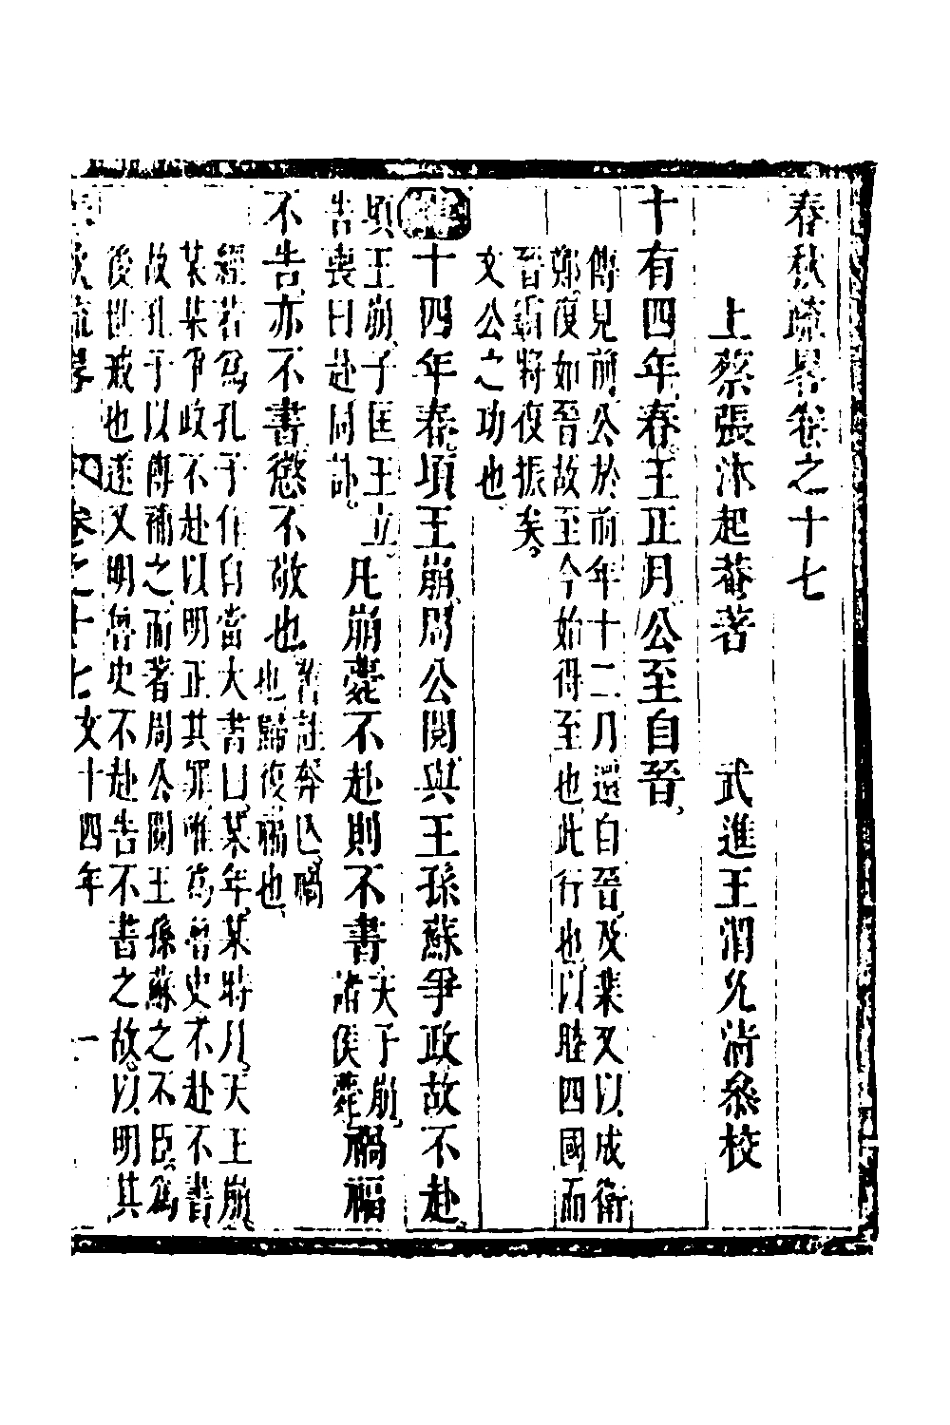 春秋疏畧卷之十七
上蔡張沐起菴著　武進王渭允淸叅校
十有四年春王正月公至自晉
傳見前公於前年十二月還自晉及棐又以成衛
鄭復如晉故至今始得至也此行也以睦四國而
晉霸將復振矣
文公之功也
十四年春頃王崩周公閱與王孫蘇爭政故不赴
頃王崩子匡王立
告喪曰赴同訃
凡崩薨不赴則不書
天子崩
諸侯薨
禍福
不告亦不書懲不敬也
舊註奔亾禍
也歸復福也
經若爲孔子作自當大書曰某年某時月天王崩
某某爭政不赴以明正其罪唯爲魯史不赴不書
故孔子以傳補之而著周公閱王孫蘇之不臣爲
後世戒也遂又明魯史不赴告不書之故以明其
春秋疏畧　卷之十七文十四年　一